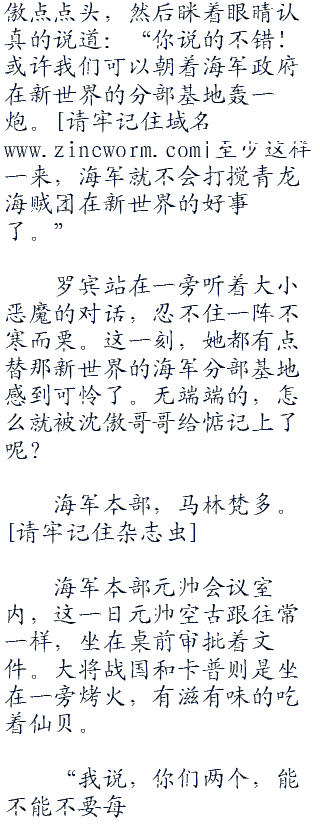 傲点点头，然后眯着眼睛认
真的说道：“你说的不错！
或许我们可以朝着海军政府
在新世界的分部基地轰一
炮。[请牢记住域名
www.zincworm.com|至少这样
一来，海军就不会打搅青龙
海贼团在新世界的好事
了。”
罗宾站在一旁听着大小
恶魔的对话，忍不住一阵不
寒而栗。这一刻，她都有点
替那新世界的海军分部基地
感到可怜了。无端端的，怎
么就被沈傲哥哥给惦记上了
呢？
海军本部，马林梵多。
[请牢记住杂志虫]
海军本部元帅会议室
内，这一日元帅空古跟往常
一样，坐在桌前审批着文
件。大将战国和卡普则是坐
在一旁烤火，有滋有味的吃
着仙贝。
“我说，你们两个，能
不能不要每